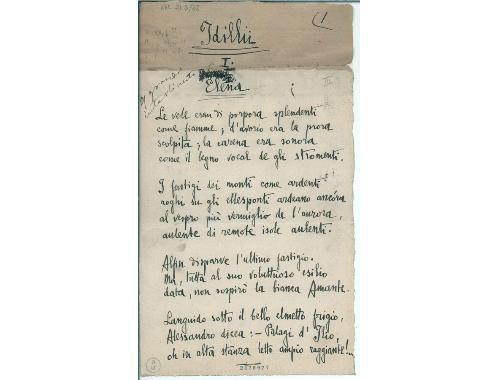 Idillii
I.
Elena
Le vele eran di porpora splendenti
come fiamme; d'avorio era la prora
scolpita; la carena era sonora
come il legno vocal de gli stromenti.
I fastigi dei monti come ardenti
roghi su gli ellesponti ardeano ancóra
al vespro più vermiglio de l'aurora,
aulente di remote isole aulenti.
Alfin disparve l'ultimo fastigio.
Ma, tutta al suo voluttuoso esilio
data, non sospirò la bianca Amante.
Languido sotto il bello elmetto frigio,
Alessandro dicea: – Palagi d'Ilio,
oh in alta stanza letto ampio raggiante!...